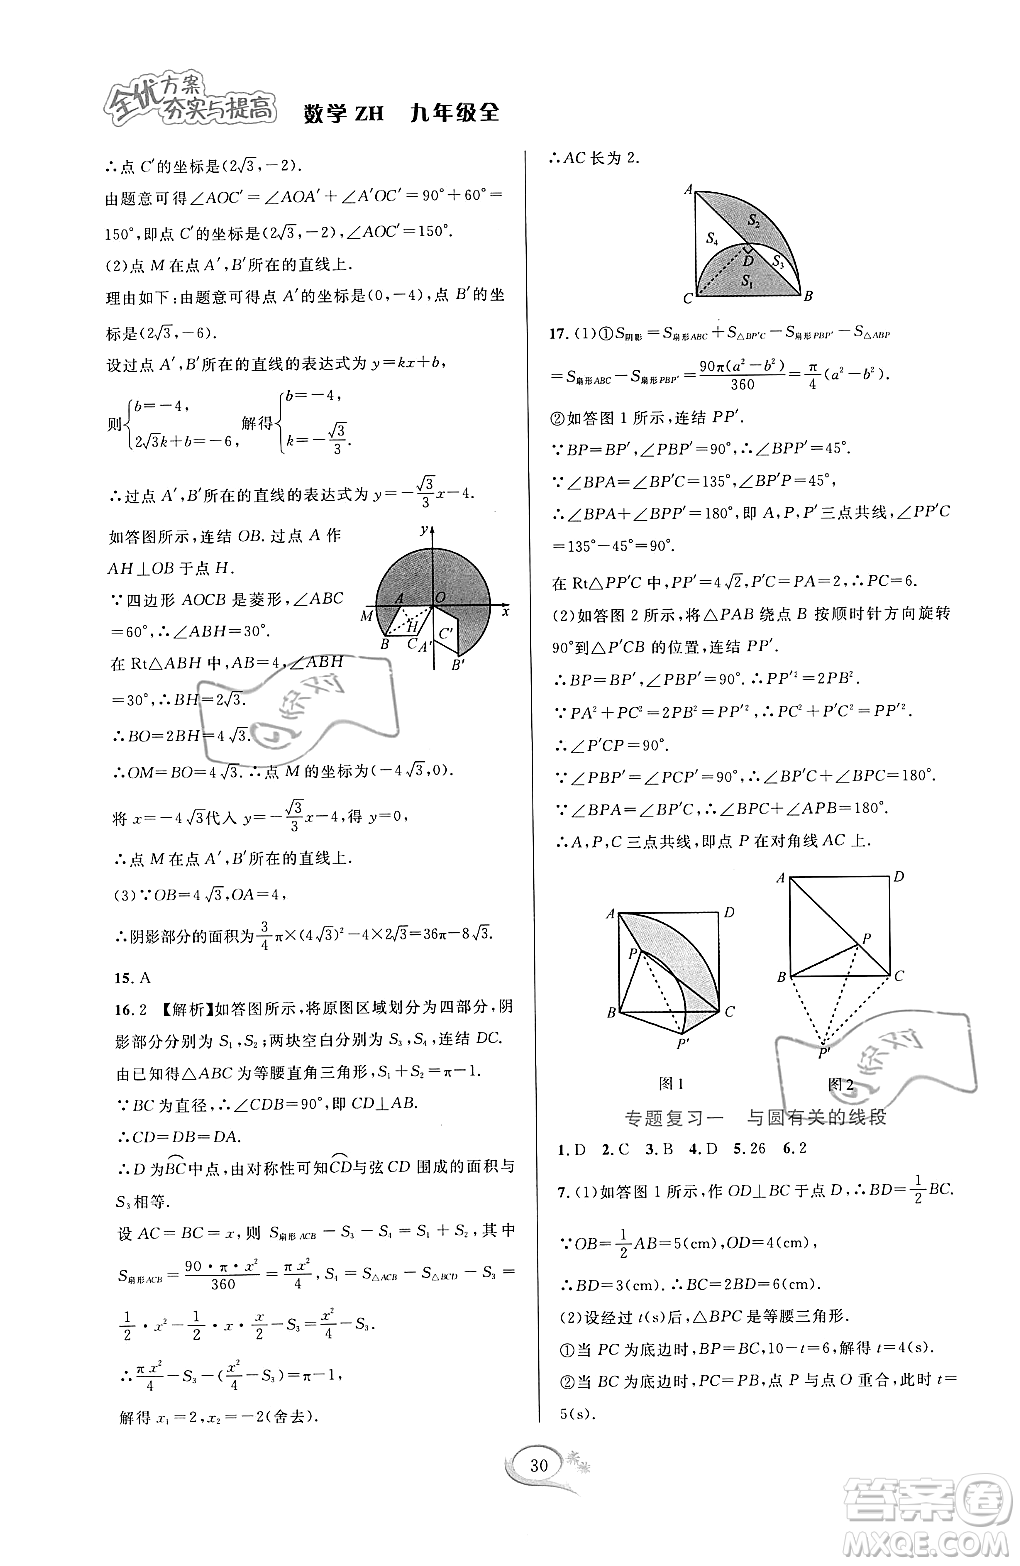 全优方案
夯实与提高
数学 ZH 九年级全
∴点 C′的坐标是(2√3,-2).
由题意可得∠AOC′=∠AOA′+∠A′OC′=90°+60°=
150°,即点 C′的坐标是(2√3,-2),∠AOC′=150°.
(2)点 M 在点 A′,B′所在的直线上.
理由如下:由题意可得点 A′的坐标是(0,-4),点 B′的坐
标是(2√3,-6).
设过点 A′,B′所在的直线的表达式为 y=kx+b,
则{b=-4, 2√3k+b=-6, 解得{b=-4, k=-√3/3.
∴过点 A′,B′所在的直线的表达式为 y=-√3/3x-4.
如答图所示,连结 OB.过点 A 作
AH⊥OB 于点 H.
∵四边形 AOCB 是菱形,∠ABC
=60°,∴∠ABH=30°.
在 Rt△ABH 中,AB=4,∠ABH
=30°.∴BH=2√3.
∴BO=2BH=4√3.
∴OM=BO=4√3.∴点 M 的坐标为(-4√3,0).
将 x=-4√3代入 y=-√3/3x-4,得 y=0,
∴点 M 在点 A′,B′所在的直线上.
(3)∵OB=4√3,OA=4,
∴阴影部分的面积为3/4π×(4√3)²-4×2√3=36π-8√3.
y
A
O
x
M
H
B
C
C′
A′
B′
15. A
16. 2 【解析】如答图所示,将原图区域划分为四部分,阴
影部分分别为 S₁,S₂;两块空白分别为 S₃,S₄,连结 DC.
由已知可得△ABC 为等腰直角三角形,S₁-S₂=π-1.
∵BC 为直径,∴∠CDB=90°,即 CD⊥AB.
∴CD=DB=DA.
∴D 为BC中点,由对称性可知CD与弦 CD 围成的面积与
S₃ 相等.
设 AC=BC=x,则 S扇形ACB-S₃-S₄=S₁+S₂,其中
S扇形ACB=90·π·x²/360=πx²/4,S₄=S△ACB-S△BCD-S₃=
1/2·x²-1/2·x·x/2-S₃=x²/4-S₃.
∴πx²/4-S₃-(x²/4-S₃)=π-1.
解得 x₁=2,x₂=-2(舍去).
∴AC 长为 2.
A
S₂
S₄
D
S₃
S₁
C
B
17. (1)①S阴影=S扇形ABC+S△BP′C-S扇形PBP′-S△ABP
=S扇形ABC-S扇形PBP′=90π(a²-b²)/360=π/4(a²-b²).
②如答图 1 所示,连结 PP′.
∵BP=BP′,∠PBP′=90°,∴∠BPP′=45°.
∵∠BPA=∠BP′C=135°,∠BPP′=45°,
∴∠BPA+∠BPP′=180°,即 A,P,P′三点共线,∠PP′C
=135°-45°=90°.
在 Rt△PP′C 中,PP′=4√2,P′C=PA=2,∴PC=6.
(2)如答图 2 所示,将△PAB 绕点 B 按顺时针方向旋转
90°到△P′CB 的位置,连结 PP′.
∴BP=BP′,∠PBP′=90°,∴PP′²=2PB².
∵PA²+PC²=2PB²=PP′²,∴PC²+P′C²=PP′².
∴∠P′CP=90°.
∵∠PBP′=∠PCP′=90°,∴∠BPC+∠BP′C=180°.
∵∠BPA=∠BP′C,∴∠BPC+∠APB=180°.
∴A,P,C 三点共线,即点 P 在对角线 AC 上.
A
D
P
B
C
P′
图 1
A
D
P
B
C
P′
图 2
专题复习一 与圆有关的线段
1. D 2. C 3. B 4. D 5. 26 6. 2
7. (1)如答图 1 所示,作 OD⊥BC 于点 D,∴BD=1/2BC.
∵OB=1/2AB=5(cm),OD=4(cm),
∴BD=3(cm),∴BC=2BD=6(cm).
(2)设经过 t(s)后,△BPC 是等腰三角形.
①当 PC 为底边时,BP=BC,10-t=6,解得 t=4(s).
②当 BC 为底边时,PC=PB,点 P 与点 O 重合,此时 t=
5(s).
30
快对
快对
答案圈
MXQE.COM